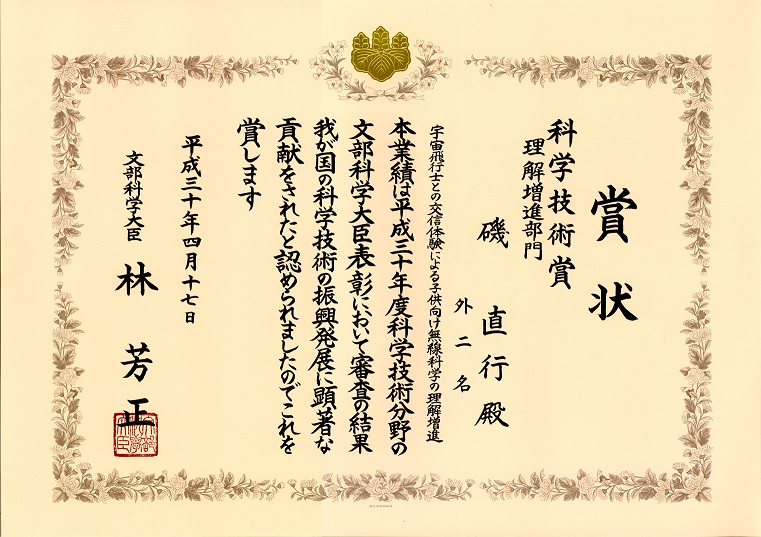 賞状
科学技術賞
理解増進部門
磯 直行殿
外二名
宇宙飛行士との交信体験による子供向け無線科学の理解増進
本業績は平成三十年度科学技術分野の
文部科学大臣表彰において審査の結果
我が国の科学技術の振興発展に顕著な
貢献をされたと認められましたのでこれを
賞します
平成三十年四月十七日
文部科学大臣 林 芳正